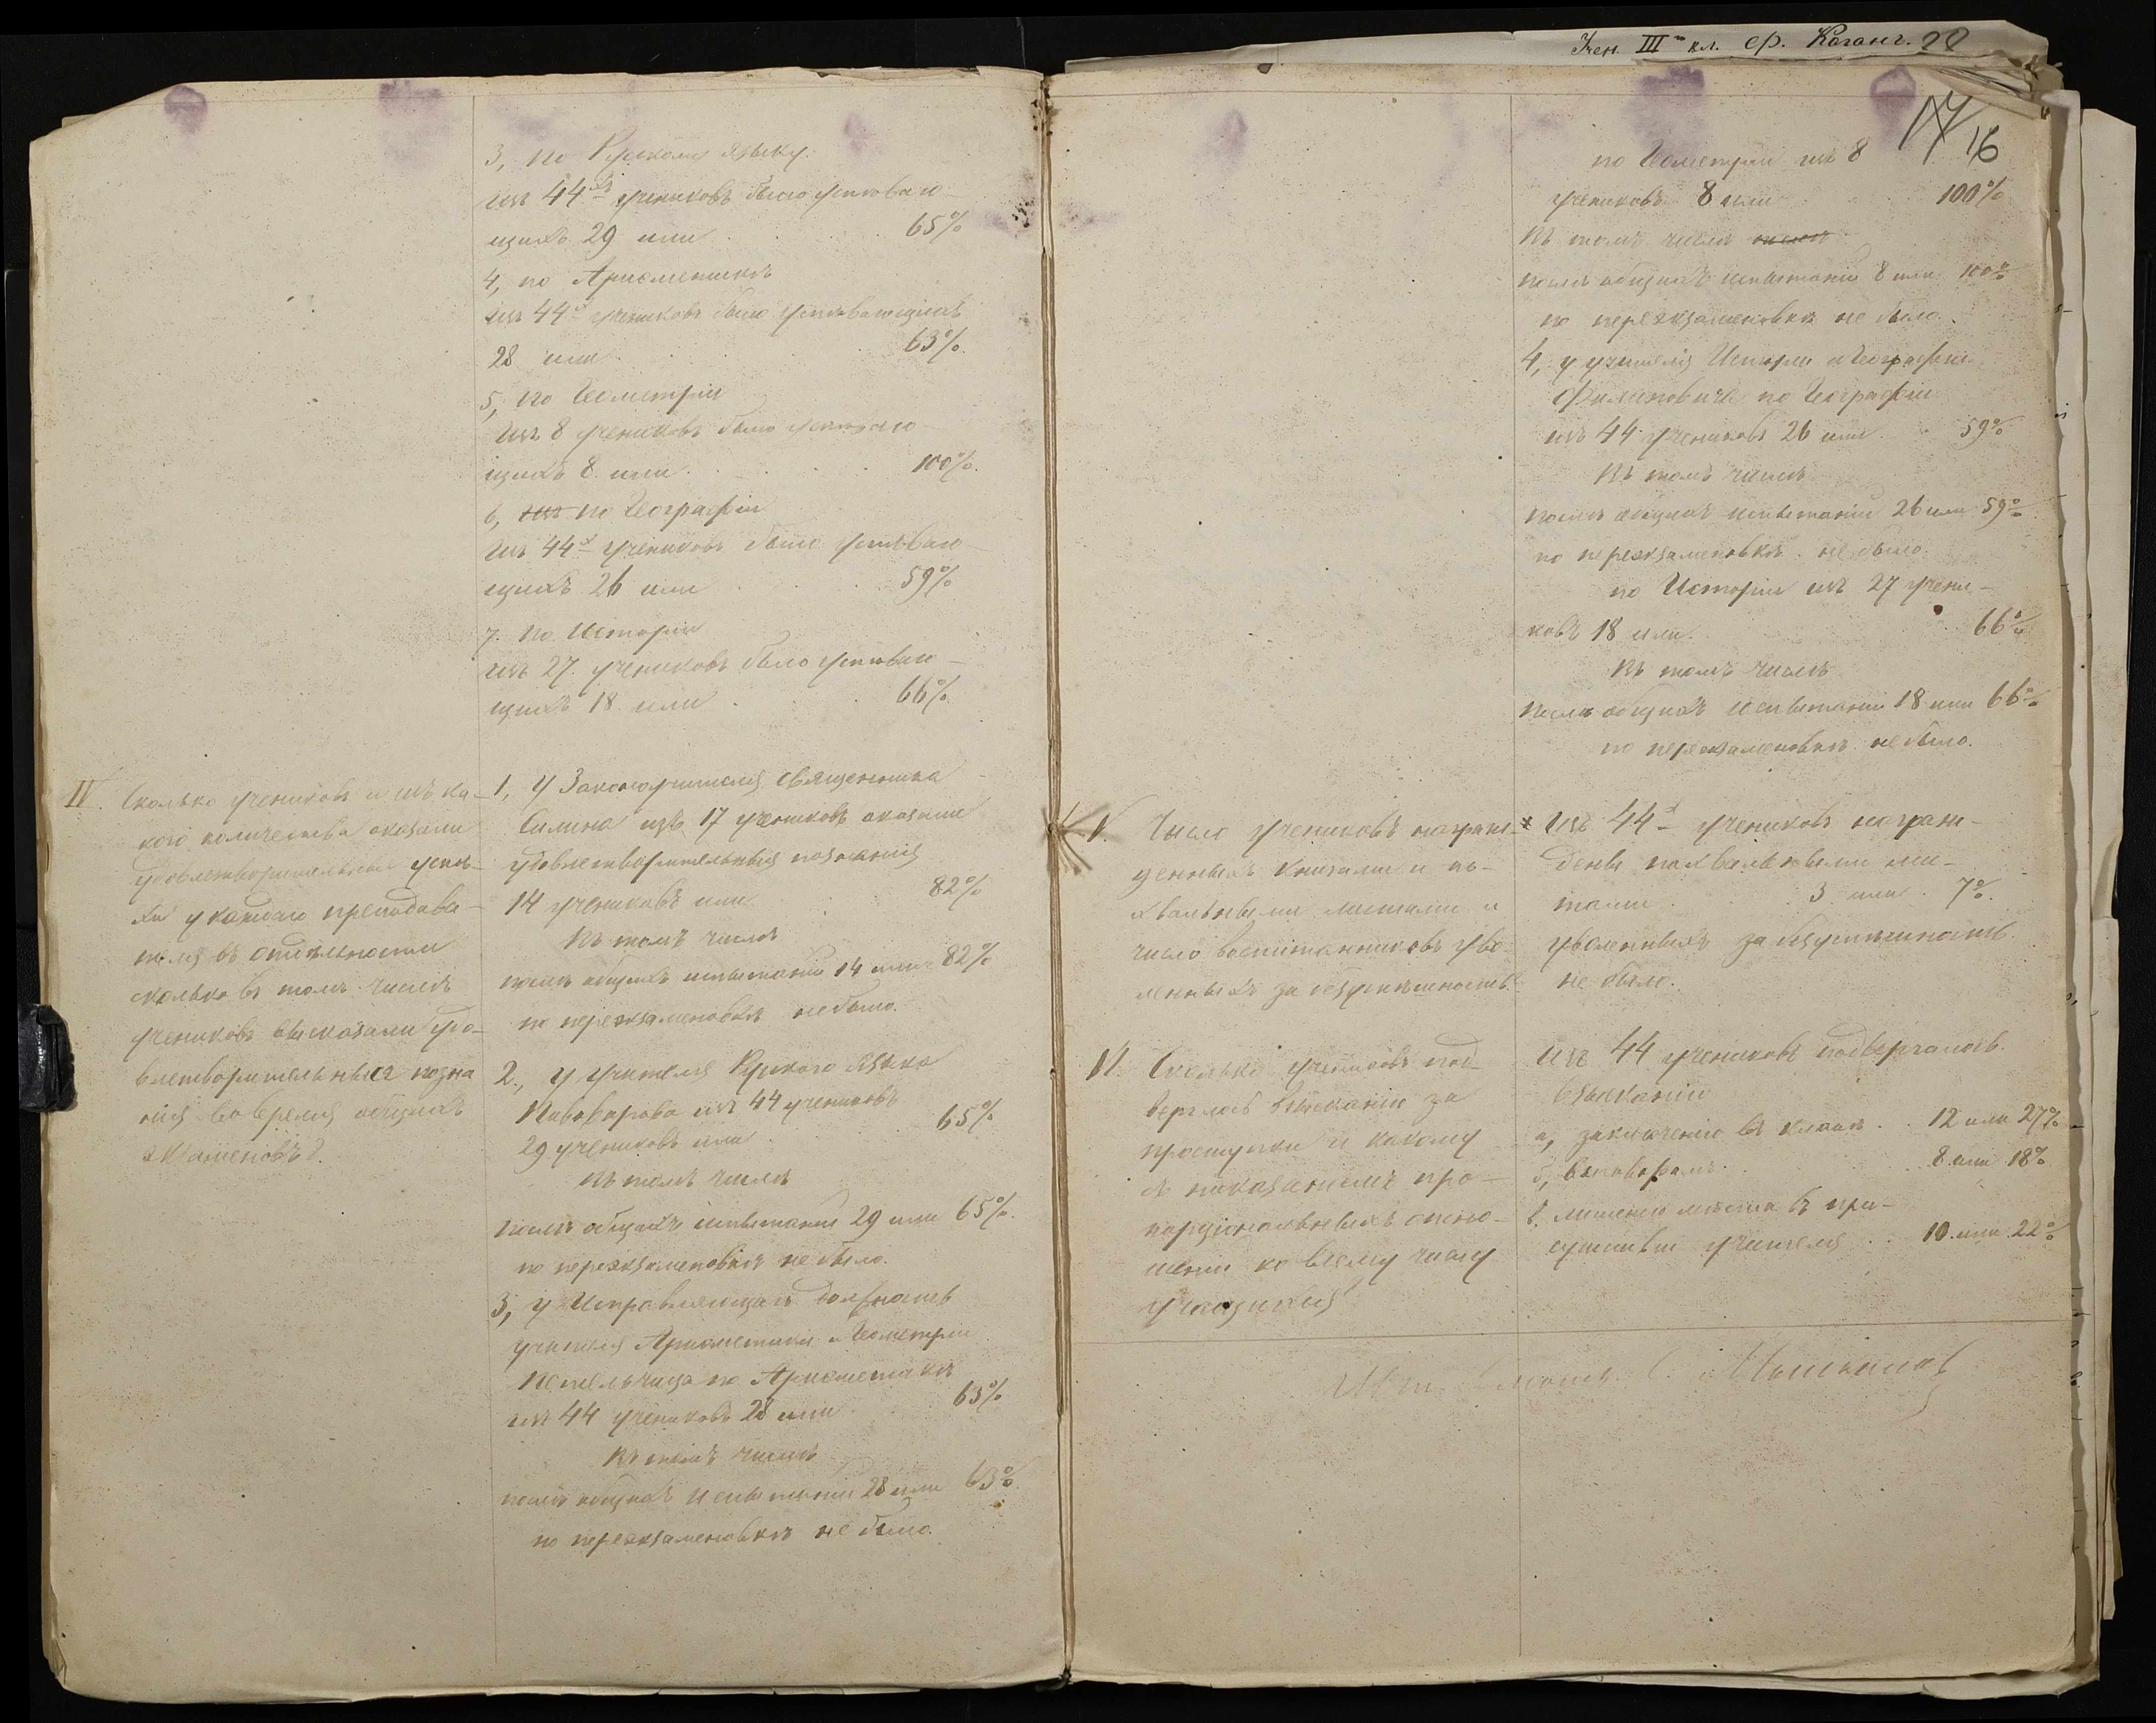 Учен. III кл. Ф. Каганъ. 20
3, по Рускому языку.
изъ 44хъ учениковъ было успѣваю
щихъ 29 или 65%
4, по Ариѳметикѣ
изъ 44х учениковъ было успѣвающихъ
28 или 63%.
5, по Геометріи
изъ 8 учениковъ было успѣваю
щихъ 8 или 100%.
6, изъ по Географіи
изъ 44х учениковъ было успѣваю
щихъ 26 или 59%
7. по Исторіи
изъ 27 учениковъ было успѣваю
щихъ 18 или 66%
IV. Сколько учениковъ и изъ ка-
кого количества оказали
удовлетворительные успѣ-
хи у каждаго преподава-
теля въ отдѣльности
сколько въ томъ числѣ
учениковъ оказали удо-
влетворительныя позна
нія во время общихъ
экзаменовъ?
1, у Законоучителя Священника
Силина изъ 17 учениковъ оказали
удовлетворительныя познанія
14 учениковъ или 82%
въ томъ числѣ
послѣ общихъ испытаній 14 или 82%
по переэкзаменовкѣ не было.
2., у учителя Рускаго языка
Пивоварова изъ 44 учениковъ
29 учениковъ или 65%
въ томъ числѣ
послѣ общихъ испытаній 29 или 65%.
по переэкзаменовкѣ не было.
3, у Исправляющаго должность
учителя Ариѳметики и Геометріи
по Ариѳметикѣ
изъ 44 учениковъ 28 или 63%
въ томъ числѣ
послѣ общихъ испытаній 28 или 63%.
по переэкзаменовкѣ не было.
17 16
по Геометріи изъ 8
учениковъ 8 или 100%
въ томъ числѣ
послѣ общихъ испытаній 8 или 100%
по переэкзаменовкѣ не было.
4, у учителя Исторіи и Географіи
Филиповича по Географіи
изъ 44 учениковъ 26 или 59%
въ томъ числѣ
послѣ общихъ испытаній 26 или 59%
по переэкзаменовкѣ не было.
по Исторіи изъ 27 учени-
ковъ 18 или 66%
въ томъ числѣ
послѣ общихъ испытаній 18 или 66%
по переэкзаменовкѣ не было.
V. Число учениковъ награж-
денныхъ книгами и по-
хвальными листами и
число воспитанниковъ уво-
ленныхъ за безуспѣшность.
Изъ 44х учениковъ награж-
дены похвальными лис-
тами 3 или 7%.
уволенныхъ за безуспѣшность
не было.
VI. Сколько учениковъ под-
верглось взысканію за
проступки и какому
съ показаніемъ про-
порціональныхъ отно-
шеній ко всему числу
учащихся
Изъ 44 учениковъ подвергалось
взысканію
а, заключенію въ классѣ 12 или 27%
б, выговорамъ 8 или 18%
в, лишенію мѣста въ при-
сутствіи учителя 10 или 22%